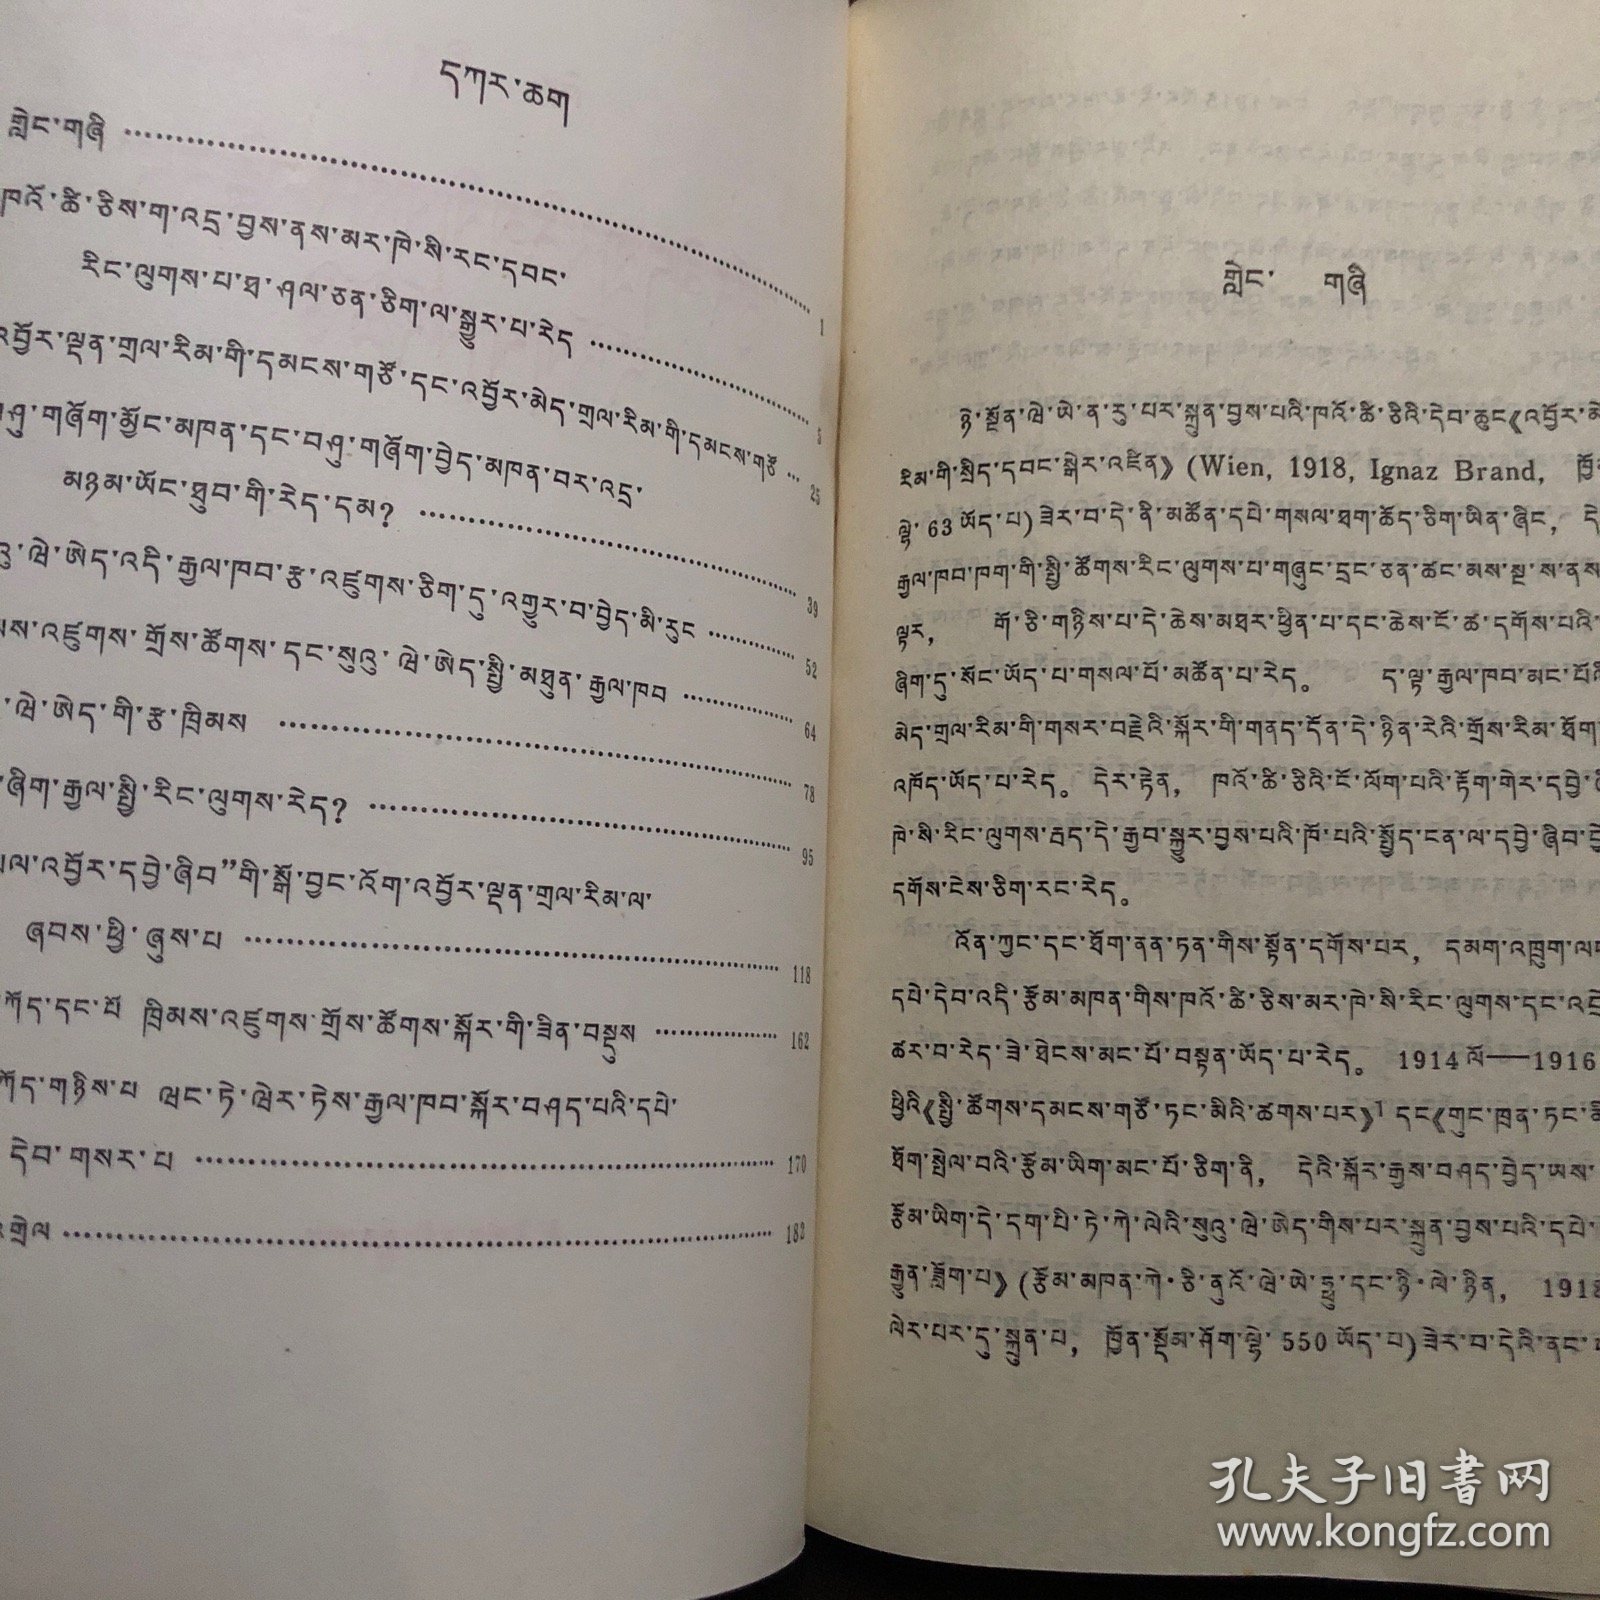 དཀར་ཆག
གླེང་གཞི ………… 1
ཁའོ་ཚི་ཅིས་ག་འདྲ་བྱས་ནས་མར་ཁེ་སི་རང་དབང་
རིང་ལུགས་པ་ཐ་ཤལ་ཅན་ཅིག་ལ་སྒྱུར་པ་རེད ………… 5
འབྱོར་ལྡན་གྲལ་རིམ་གི་དམངས་གཙོ་དང་འབྱོར་མེད་གྲལ་རིམ་གི་དམངས་གཙོ … 25
གཤུ་གཞོག་མྱོང་མཁན་དང་བཤུ་གཞོག་བྱེད་མཁན་བར་འདྲ་
མཉམ་ཡོང་ཐུབ་གི་རེད་དམ? ………… 39
ཝེ་ཨེད་འདི་རྒྱལ་ཁབ་རྩ་འཛུགས་ཅིག་དུ་འགྱུར་བ་བྱེད་མི་རུང ………… 52
འཛུགས་གྲོས་ཚོགས་དང་སུའུ་ཝེ་ཨེད་སྤྱི་མཐུན་རྒྱལ་ཁབ ………… 64
ཝེ་ཨེད་གི་རྩ་ཁྲིམས ………… 78
ཞིག་རྒྱལ་སྤྱི་རིང་ལུགས་རེད? ………… 95
འབྱོར་དབྱེ་ཞིབ”གི་སྒོ་བྱང་འོག་འབྱོར་ལྡན་གྲལ་རིམ་ལ་
ཞབས་ཕྱི་ཞུས་པ ………… 118
ཀོད་དང་པོ ཁྲིམས་འཛུགས་གྲོས་ཚོགས་སྐོར་གི་ཟིན་བསྡུས ………… 162
ཀོད་གཉིས་པ ཝང་ཏེ་ཝེར་ཏེས་རྒྱལ་ཁབ་སྐོར་བཤད་པའི་དཔེ་
དེབ་གསར་པ ………… 170
འགྲེལ ………… 183
གླེང་ གཞི
ཉེ་སྔོན་ཝེ་ཡེ་ན་རུ་པར་སྐྲུན་བྱས་པའི་ཁའོ་ཚི་ཅིའི་དེབ་ཆུང《འབྱོར་མེ
རིམ་གི་སྲིད་དབང་སྒེར་འཛིན》(Wien, 1918, Ignaz Brand,
ལྷེ་63ཡོད་པ)ཟེར་བ་དེ་ནི་མཚོན་དཔེ་གསལ་ཐག་ཆོད་ཅིག་ཡིན་ཞིང,
རྒྱལ་ཁབ་ཁག་གི་སྤྱི་ཚོགས་རིང་ལུགས་པ་གཞུང་དྲང་ཅན་ཚང་མས་སྔ་ས་ནས
ལྟར, གོ་ཅི་གཉིས་པ་དེ་ཆེས་མཐར་ཕྱིན་པ་དང་ཆེས་ངོ་ཚ་དགོས་པའི་
ཞིག་དུ་སོང་ཡོད་པ་གསལ་པོ་མཚོན་པ་རེད。 ད་ལྟ་རྒྱལ་ཁབ་མང་པོའི
མེད་གྲལ་རིམ་གི་གསར་བརྗེའི་སྐོར་གི་གནད་དོན་དེ་ཉིན་རེའི་གྲོས་རིམ་ཐོག
འཁོད་ཡོད་པ་རེད。 དེར་རྟེན, ཁའོ་ཚི་ཅིའི་ངོ་ལོག་པའི་རྟོག་གེར་དབྱེ་
ཁེ་སི་རིང་ལུགས་རྦད་དེ་རྒྱབ་སྐྱུར་བྱས་པའི་ཁོ་པའི་སྤྱོད་ངན་ལ་དབྱེ་ཞིབ་
དགོས་ངེས་ཅིག་རང་རེད。
འོན་ཀྱང་དང་ཐོག་ནན་ཏན་གིས་སྟོན་དགོས་པར, དམག་འཁྲུག་
དཔེ་དེབ་འདི་རྩོམ་མཁན་གིས་ཁའོ་ཚི་ཅིས་མར་ཁེ་སི་རིང་ལུགས་དང་
ཚར་བ་རེད་ཟེ་ཐེངས་མང་པོ་བསྟན་ཡོད་པ་རེད。 1914ལོ——1916
ཕྱིའི《སྤྱི་ཚོགས་དམངས་གཙོ་ཏང་མིའི་ཚགས་པར》¹དང《གུང་ཁྲན་ཏང་
ཐོག་སྤེལ་བའི་རྩོམ་ཡིག་མང་པོ་ཅིག་ནི, དེའི་སྐོར་རྒྱས་བཤད་བྱེད་ཡས་
རྩོམ་ཡིག་དེ་དག་པི་ཏེ་ཀེ་ལེའི་སུའུ་ཝེ་ཨེད་གིས་པར་སྐྲུན་བྱས་པའི་དཔེ་
རྒྱུན་ཟློག་པ》(རྩོམ་མཁན་ཀེ·ཅི་ནུའོ་ཝེ་ཡེ་ཧྥུ་དང་ཉི·ལེ་ཉིན, 1918
ལེར་པར་དུ་སྐྲུན་པ, ཁྱོན་སྡོམ་ཤོག་ལྷེ་550ཡོད་པ)ཟེར་བ་དེའི་ནང་
孔夫子旧书网
www.kongfz.com